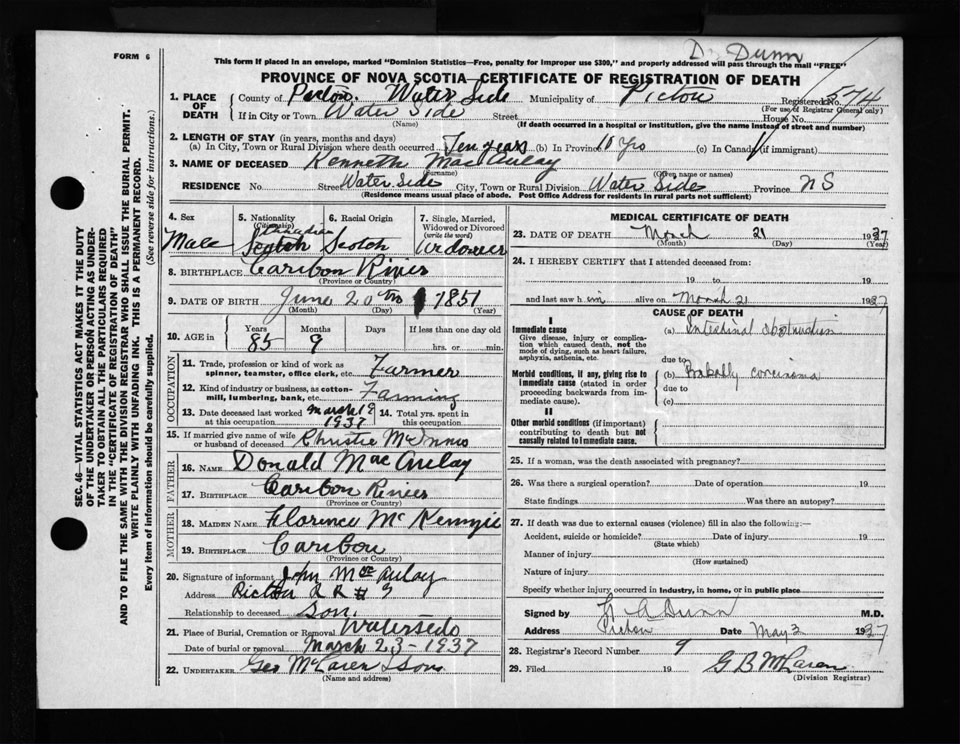 Dr Dunn
FORM 6
This form if placed in an envelope, marked "Dominion Statistics—Free, penalty for improper use $300," and properly addressed will pass through the mail "FREE"
PROVINCE OF NOVA SCOTIA—CERTIFICATE OF REGISTRATION OF DEATH
1. PLACE OF DEATH
County of Pictou Water Side Municipality of Pictou Registered No. 574
(For use of Registrar General only)
If in City or Town Water Side Street House No.
(Name) (If death occurred in a hospital or institution, give the name instead of street and number)
2. LENGTH OF STAY (in years, months and days)
(a) In City, Town or Rural Division where death occurred Ten years (b) In Province 10 yrs (c) In Canada (if immigrant)
3. NAME OF DECEASED Kenneth MacAulay
(Surname) (Given name or names)
RESIDENCE No. Street Water Side City, Town or Rural Division Water Side Province NS
(Residence means usual place of abode. Post Office Address for residents in rural parts not sufficient)
4. Sex Male
5. Nationality (Citizenship) Canadian Scotch
6. Racial Origin Scotch
7. Single, Married, Widowed or Divorced (write the word) Widower
8. BIRTHPLACE Caribou River
(Province or Country)
9. DATE OF BIRTH June 20th 1851
(Month) (Day) (Year)
10. AGE in Years 85 Months 9 Days If less than one day old hrs. or min.
OCCUPATION
11. Trade, profession or kind of work as spinner, teamster, office clerk, etc. Farmer
12. Kind of industry or business, as cotton-mill, lumbering, bank, etc. Farming
13. Date deceased last worked at this occupation March 18 1937
14. Total yrs. spent in this occupation
15. If married give name of wife or husband of deceased Christie McInnis
FATHER
16. NAME Donald MacAulay
17. BIRTHPLACE Caribou River
(Province or Country)
MOTHER
18. MAIDEN NAME Florence McKenzie
19. BIRTHPLACE Caribou
(Province or Country)
20. Signature of informant John McAulay
Address Pictou R R #
Relationship to deceased Son.
21. Place of Burial, Cremation or Removal Waterside
Date of burial or removal March 23 - 1937
22. UNDERTAKER Geo McLaren & Sons
(Name and address)
MEDICAL CERTIFICATE OF DEATH
23. DATE OF DEATH March 21 1937
(Month) (Day) (Year)
24. I HEREBY CERTIFY that I attended deceased from:
19 to 19
and last saw him alive on March 21 1937
CAUSE OF DEATH
I
Immediate cause
Give disease, injury or complication which caused death, not the mode of dying, such as heart failure, asphyxia, asthenia, etc.
(a) Intestinal obstruction
due to
Morbid conditions, if any, giving rise to immediate cause (stated in order proceeding backwards from immediate cause).
(b) Probably carcinoma
due to
(c)
II
Other morbid conditions (if important) contributing to death but not causally related to immediate cause.
25. If a woman, was the death associated with pregnancy?
26. Was there a surgical operation? Date of operation 19
State findings Was there an autopsy?
27. If death was due to external causes (violence) fill in also the following:—
Accident, suicide or homicide? Date of injury 19
(State which)
Manner of injury
(How sustained)
Nature of injury
Specify whether injury occurred in industry, in home, or in public place
Signed by H A Dunn M.D.
Address Pictou Date May 3 1937
28. Registrar's Record Number 9
29. Filed 19 G B McLaren
(Division Registrar)
SEC. 46—VITAL STATISTICS ACT MAKES IT THE DUTY
OF THE UNDERTAKER OR PERSON ACTING AS UNDER-
TAKER TO OBTAIN ALL THE PARTICULARS REQUIRED
IN THE "CERTIFICATE OF REGISTRATION OF DEATH"
AND TO FILE THE SAME WITH THE DIVISION REGISTRAR WHO SHALL ISSUE THE BURIAL PERMIT.
WRITE PLAINLY WITH UNFADING INK. THIS IS A PERMANENT RECORD.
Every item of information should be carefully supplied. (See reverse side for instructions.)